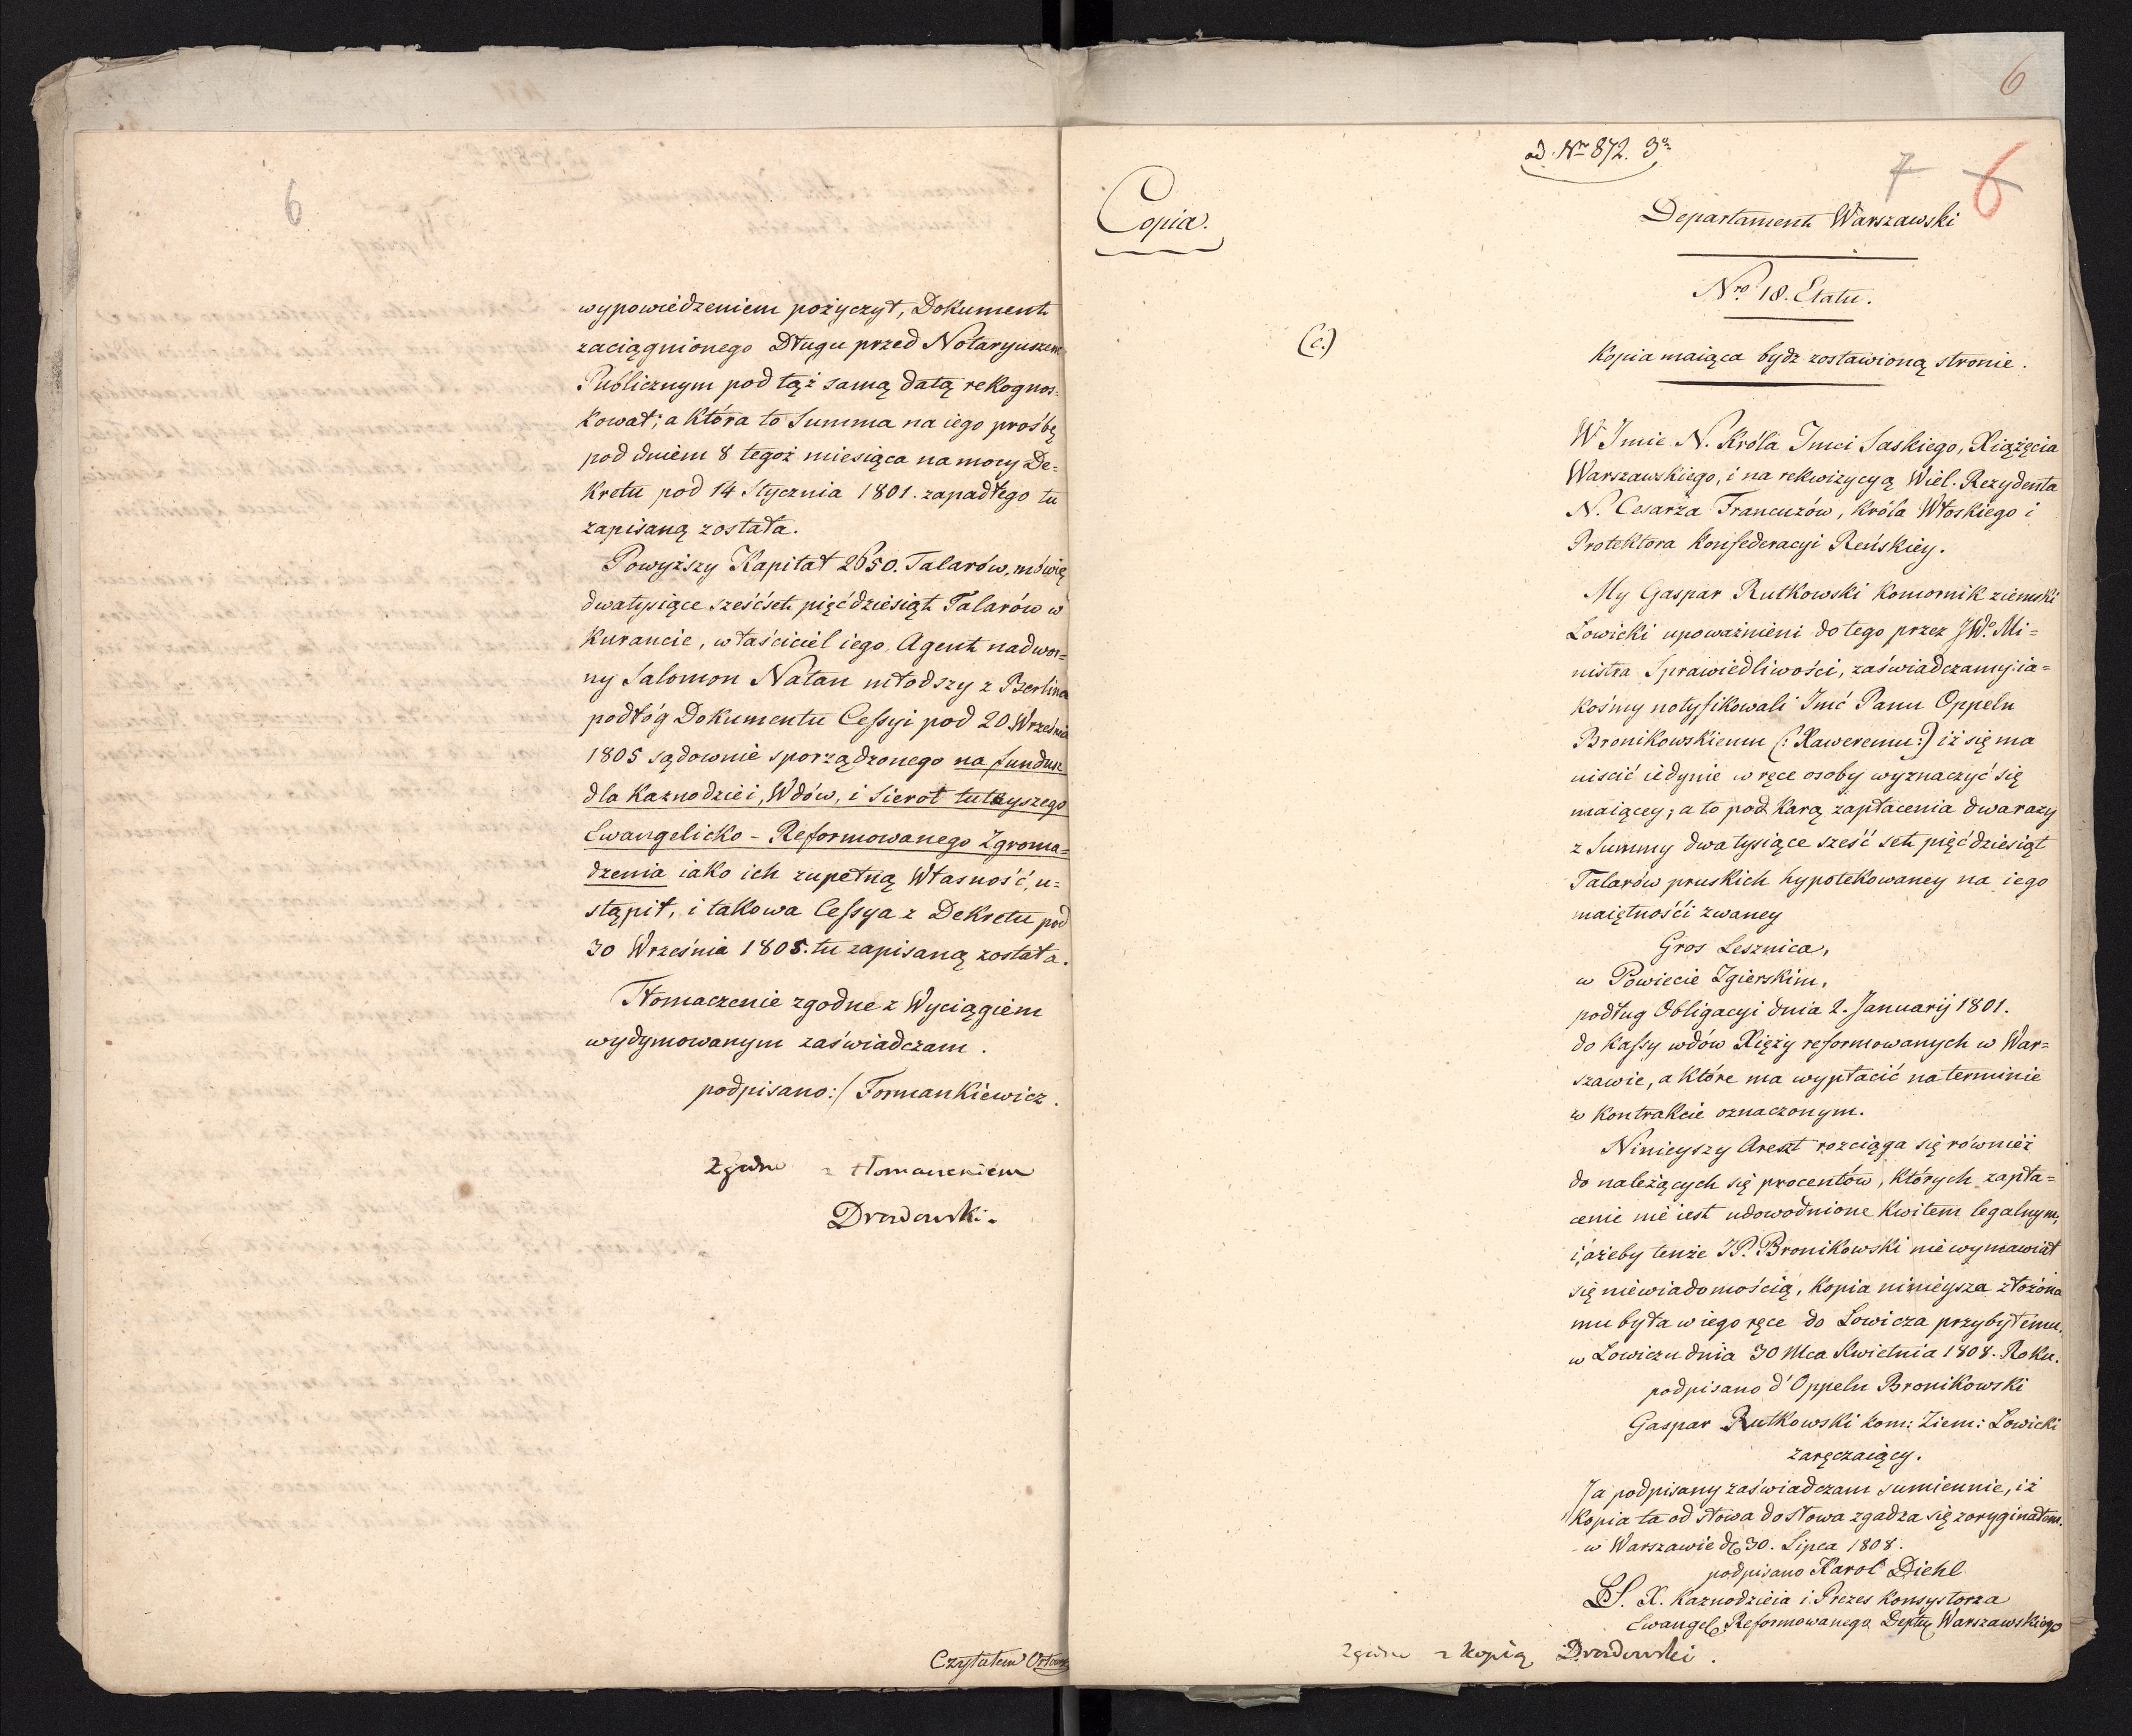 6
wypowiedzeniem pożyczył, Dokument
zaciągnionego Długu przed Notaryuszem
Publicznym pod tąż samą datą rekognos=
kował; a która to Summa na iego prośbę
pod dniem 8 tegoż miesiąca na mocy De=
kretu pod 14 Stycznia 1801. zapadłego tu
zapisaną została.
Powyższy Kapitał 2650. Talarów, mówię
dwatysiące sześćset pięćdziesiąt Talarów w
Kurancie, właściciel iego Agent nadwor=
ny Salomon Natan młodszy z Berlina
podłóg Dokumentu Cessyi pod 20 Września
1805 sądownie sporządzonego na fundusz
dla Kaznodziei, Wdów, i Sierot tuteyszego
Ewangelicko - Reformowanego Zgroma=
dzenia iako ich zupełną Własność, u=
stąpił, i takowa Cessya z Dekretu pod
30 Września 1805. tu zapisaną została.
Tłomaczenie zgodne z Wyciągiem
wydymowanym zaświadczam.
podpisano:/ Formankiewicz.
Zgodno z tłomaczeniem
Drozdowski.
Czytałem
6
ad Nr 872. 3o
7 6
Copia.
Departament Warszawski
Nro 18. Etatu.
(c.)
Kopia maiąca bydz zostawioną stronie.
W Imie N. Króla Imci Saskiego, Xiążęcia
Warszawskiego, i na rekwizycyą Wiel. Rezydenta
N. Cesarza Francuzów, Króla Włoskiego i
Protektora Konfederacyi Reńskiey.
My Gaspar Rutkowski Komornik ziemski
Łowicki upoważnieni do tego przez JWo. Mi=
nistra Sprawiedliwości, zaświadczamy, ia=
kośmy notyfikowali Imć Panu Oppeln
Bronikowskiemu (: Xaweremu :) iż się ma
uiscić iedynie w ręce osoby wyznaczyć się
maiącey; a to pod karą zapłacenia dwa razy
z Summy dwa tysiące sześć set pięćdziesiąt
Talarów pruskich hypotekowaney na iego
maiętności zwaney
Gros Lesznica,
w Powiecie Zgierskim,
podług Obligacyi dnia 2. Januarij 1801.
do Kassy wdów Xięży reformowanych w War=
szawie, a które ma wypłacić na terminie
w kontrakcie oznaczonym.
Ninieyszy Areszt rozciąga się również
do należących się procentów, których zapła=
cenie nie iest udowodnione Kwitem legalnym,
i ażeby tenże JP. Bronikowski nie wymawiał
się niewiadomością, Kopia ninieysza złożona
mu była w iego ręce do Łowicza przybyłemu.
w Łowiczu dnia 30 Mca Kwietnia 1808. Roku.
podpisano d'Oppeln Bronikowski
Gaspar Rutkowski kom: Ziem: Łowicki
zaręczaiący.
Ja podpisany zaświadczam sumiennie, iż
Kopia ta od słowa do słowa zgadza się z oryginałem.
w Warszawie d. 30. Lipca 1808.
podpisano Karol Diehl
LS. X. Kaznodzieia i Prezes Konsystorza
Ewangel. Reformowanego Deptu Warszawskiego
Zgodno z kopią Drozdowski.